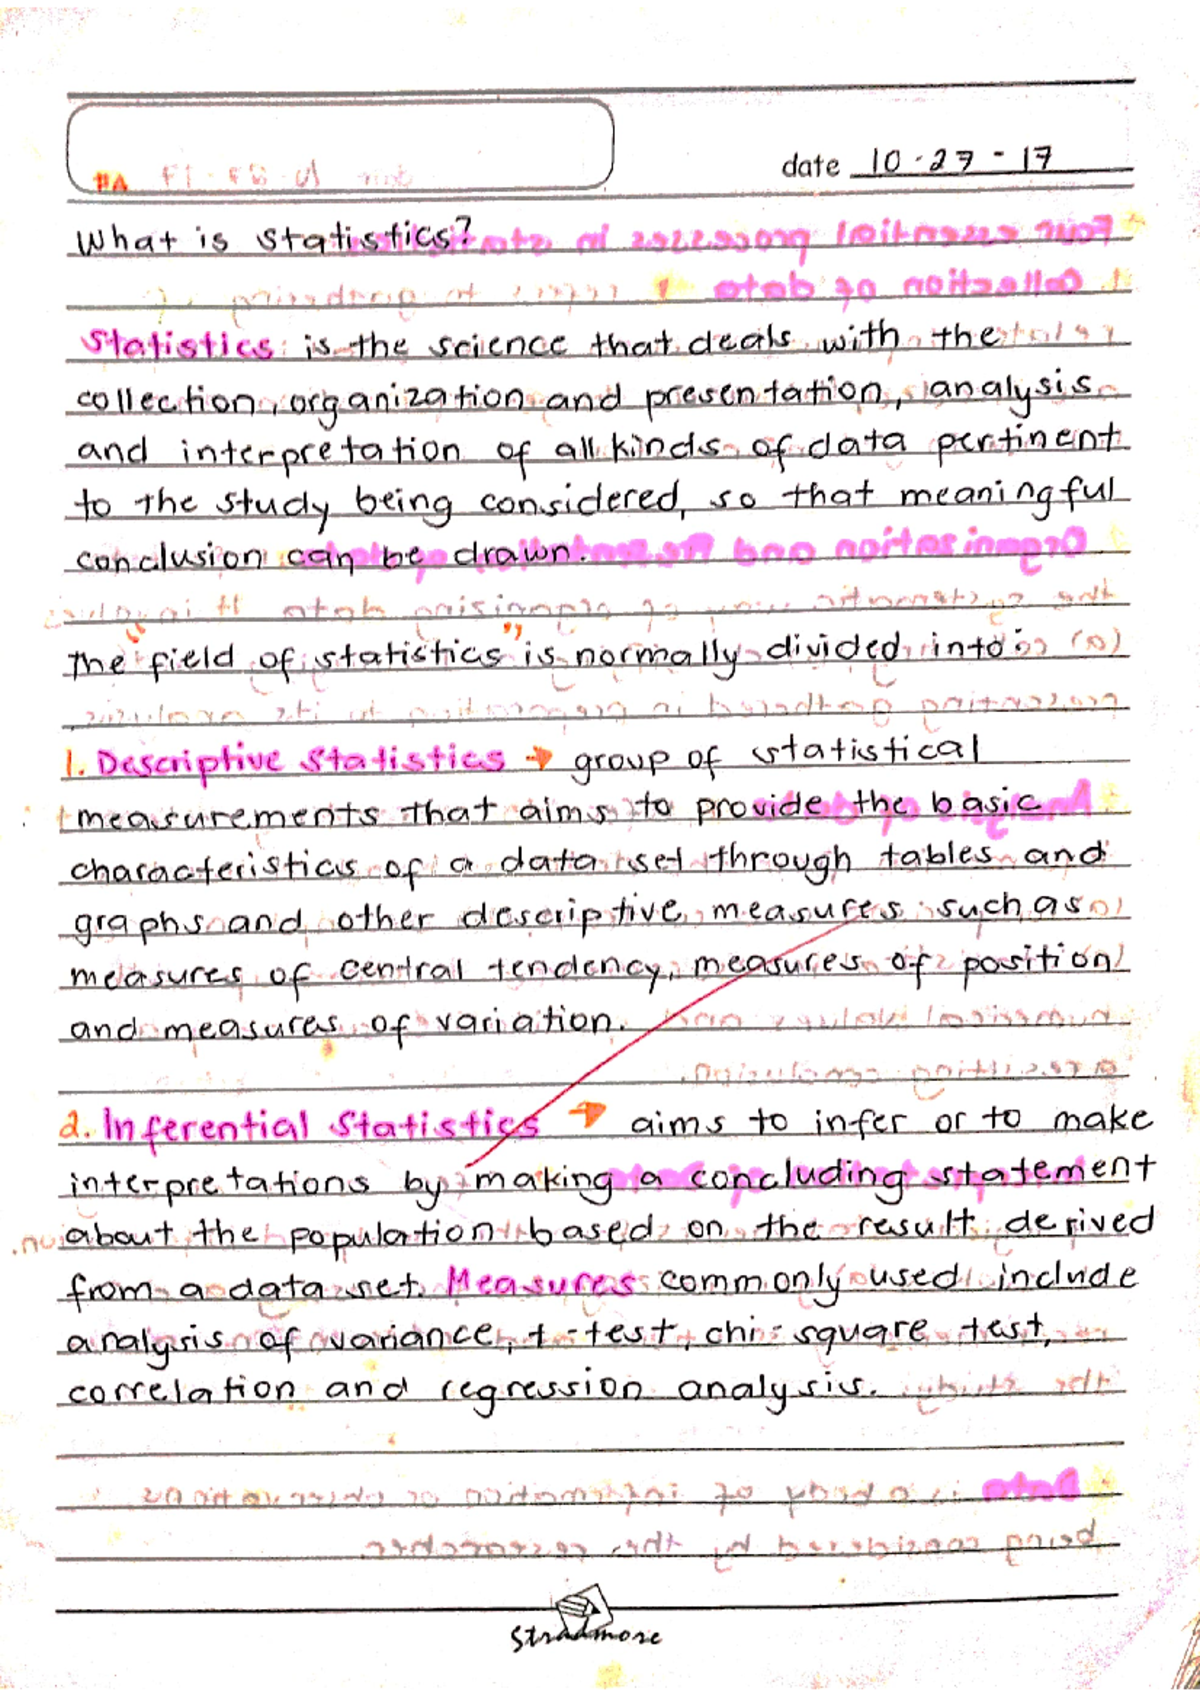 date 10-27-17
What is statistics?
Statistics is the science that deals with the
collection, organization and presentation, analysis
and interpretation of all kinds of data pertinent
to the study being considered, so that meaningful
conclusion can be drawn.
The "field of statistics" is normally divided into:
1. Descriptive Statistics → group of statistical
measurements that aims to provide the basic
characteristics of a data set through tables and
graphs and other descriptive measures such as
measures of central tendency, measures of position
and measures of variation.
2. Inferential Statistics → aims to infer or to make
interpretations by making a concluding statement
about the population based on the result derived
from a data set. Measures commonly used include
analysis of variance, t-test, chi-square test,
correlation and regression analysis.
Stradmore